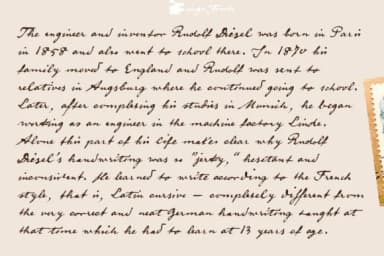 The engineer and inventor Rudolf Diesel was born in Paris
in 1858 and also went to school there. In 1870 his
family moved to England and Rudolf was sent to
relatives in Augsburg where he continued going to school.
Later, after completing his studies in Munich, he began
working as an engineer in the machine factory Linde.
Alone this part of his life makes clear why Rudolf
Diesel's handwriting was so "jerky," hesitant and
inconsistent. He learned to write according to the French
style, that is, Latin cursive – completely different from
the very correct and neat German handwriting taught at
that time which he had to learn at 13 years of age.